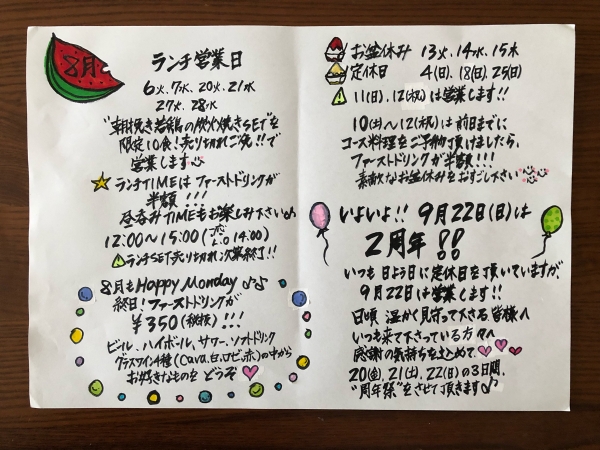 8月
ランチ営業日
6火、7水、20火、21水
27火、28水
"朝挽き若鶏の炊火焼きSET"を
限定10食!売り切れご免!!で
営業します
ランチTIMEはファーストドリンクが
半額!!!
昼呑みTIMEもお楽しみ下さい♪
12:00〜15:00(L.O 14:00)
ランチSET売り切れ次第終了!!
8月もHappy Monday♪♪
終日!ファーストドリンクが
¥350(税抜)!!!
ビール、ハイボール、サワー、ソフトドリンク
グラスワイン4種(Cava、白、ロゼ、赤)の中から
お好きなものをどうぞ
お盆休み 13火、14水、15木
定休日 4(日)、18(日)、25(日)
11(日)、12(月祝)は営業します!!
10(土)〜12(月祝)は前日までに
コース料理をご予約頂けましたら、
ファーストドリンクが半額!!!
素敵なお盆休みをおすごし下さい
いよいよ!! 9月22日(日)は
2周年!!
いつも日よう日に定休日を頂いていますが、
9月22日は営業します!!
日頃 温かく見守って下さる皆様へ
いつも来て下さっている方々へ
感謝の気持ちを込めて
20(金)、21(土)、22(日)の3日間、
"周年祭"をさせて頂きます♪